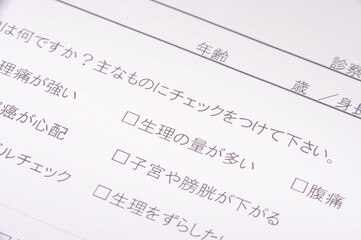 診察
年齢　　歳／身長
は何ですか？主なものにチェックをつけて下さい。
理痛が強い　□生理の量が多い　□腹痛
癌が心配　□子宮や膀胱が下がる
ルチェック　□生理をずらした